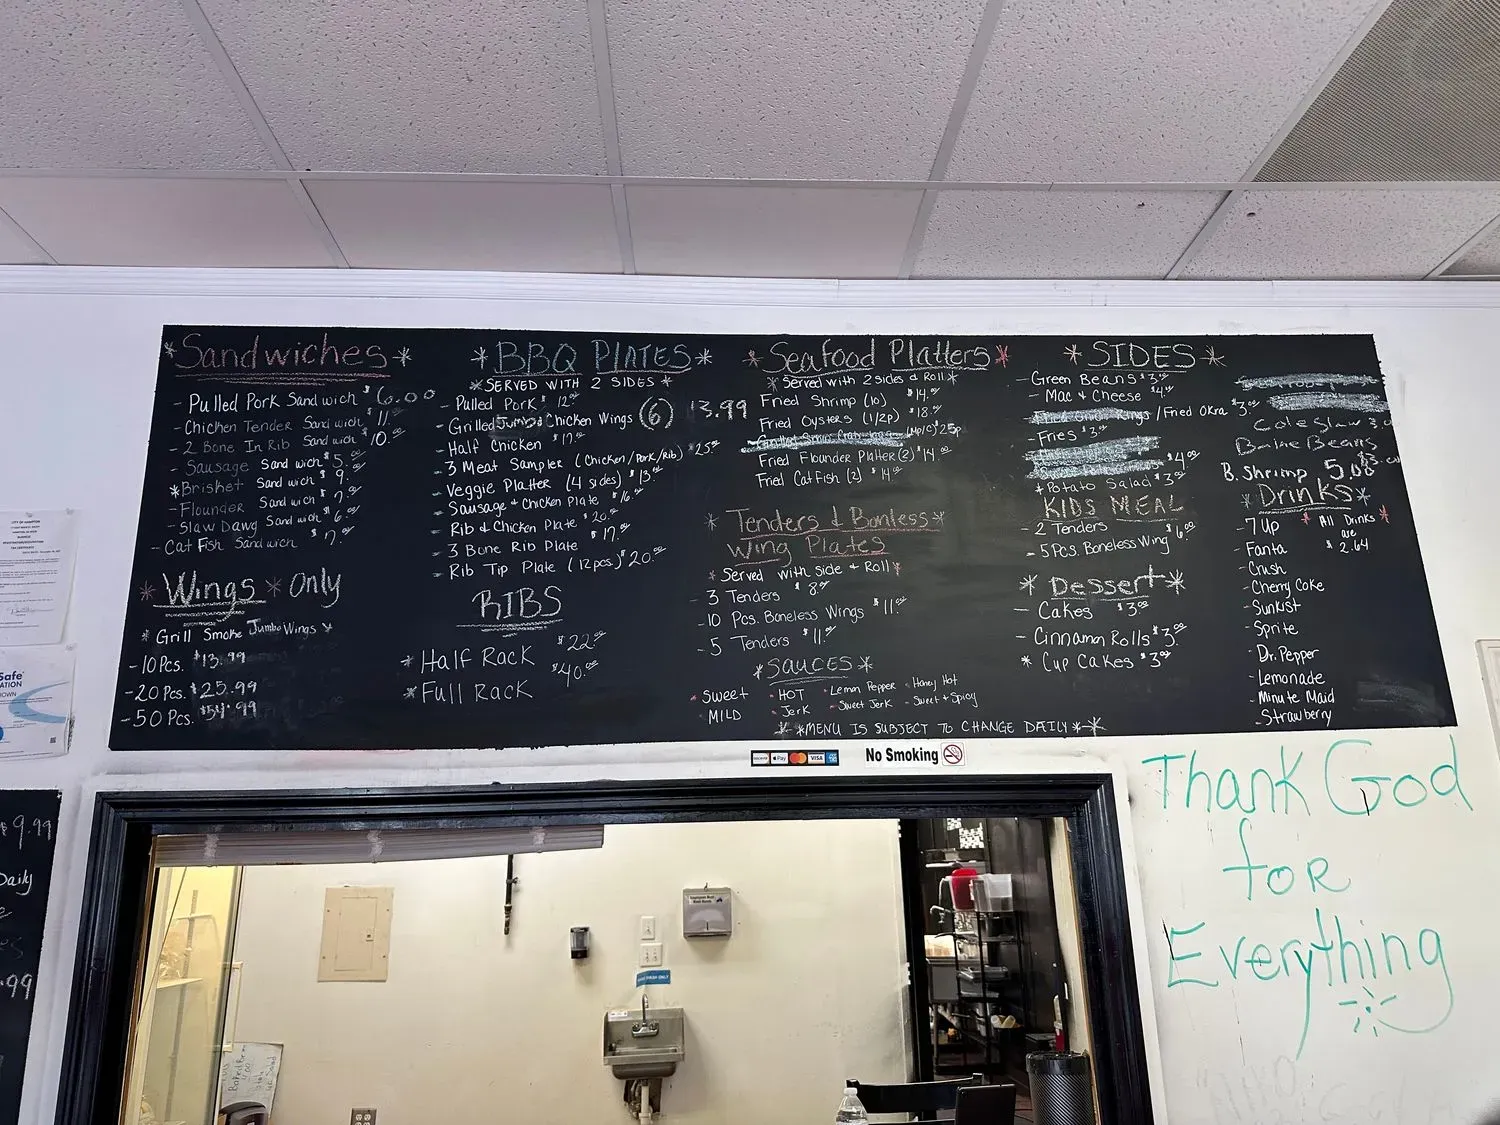 *Sandwiches*
- Pulled Pork Sandwich $6.00
- Chicken Tender Sandwich $11.
- 2 Bone In Rib Sandwich $10.
- Sausage Sandwich $5.
*Brisket Sandwich $9.
- Flounder Sandwich $7.
- Slaw Dawg Sandwich $6.
- Cat Fish Sandwich $7.
*Wings* Only
* Grill Smoke Jumbo Wings *
- 10 Pcs. $13.99
- 20 Pcs. $25.99
- 50 Pcs. $54.99
*BBQ PLATES*
*SERVED WITH 2 SIDES*
- Pulled Pork $12
- Grilled Jumbo Chicken Wings (6) 13.99
- Half Chicken $17
- 3 Meat Sampler (Chicken/Pork/Rib) $25
- Veggie Platter (4 sides) $13
- Sausage & Chicken Plate $16
- Rib & Chicken Plate $20
- 3 Bone Rib Plate $17
- Rib Tip Plate (12pcs.) $20
RIBS
* Half Rack $22
* Full Rack $40
*Seafood Platters*
*Served with 2 sides & Roll*
Fried Shrimp (10) $14
Fried Oysters (1/2p) $18
(Mp/o) $25p
Fried Flounder Platter (2) $14
Fried Cat Fish (2) $14
*Tenders & Bonless Wing Plates*
*Served with side & Roll*
- 3 Tenders $8
- 10 Pcs. Boneless Wings $11
- 5 Tenders $11
*SAUCES*
* Sweet
- MILD
- HOT
- Jerk
- Lemon Pepper
- Sweet Jerk
- Honey Hot
- Sweet & Spicy
**MENU IS SUBJECT TO CHANGE DAILY**
*SIDES*
- Green Beans $3
- Mac & Cheese $4
/Fried Okra $3
- Fries $3
$4
* Potato Salad $3
Cole Slaw 3.0
Bake Beans $3.00
B. Shrimp 5.00
KIDS MEAL
- 2 Tenders
- 5 Pcs. Boneless Wing $6
*Dessert*
- Cakes $3
- Cinnamon Rolls $3
* Cup Cakes $3
*Drinks*
* All Drinks *
are
$2.64
- 7 Up
- Fanta
- Crush
- Cherry Coke
- Sunkist
- Sprite
- Dr. Pepper
- Lemonade
- Minute Maid
- Strawberry
Pay
VISA
No Smoking
Thank God
for
Everything
$9.99
Daily
.99
CITY OF HAMPTON
Safe